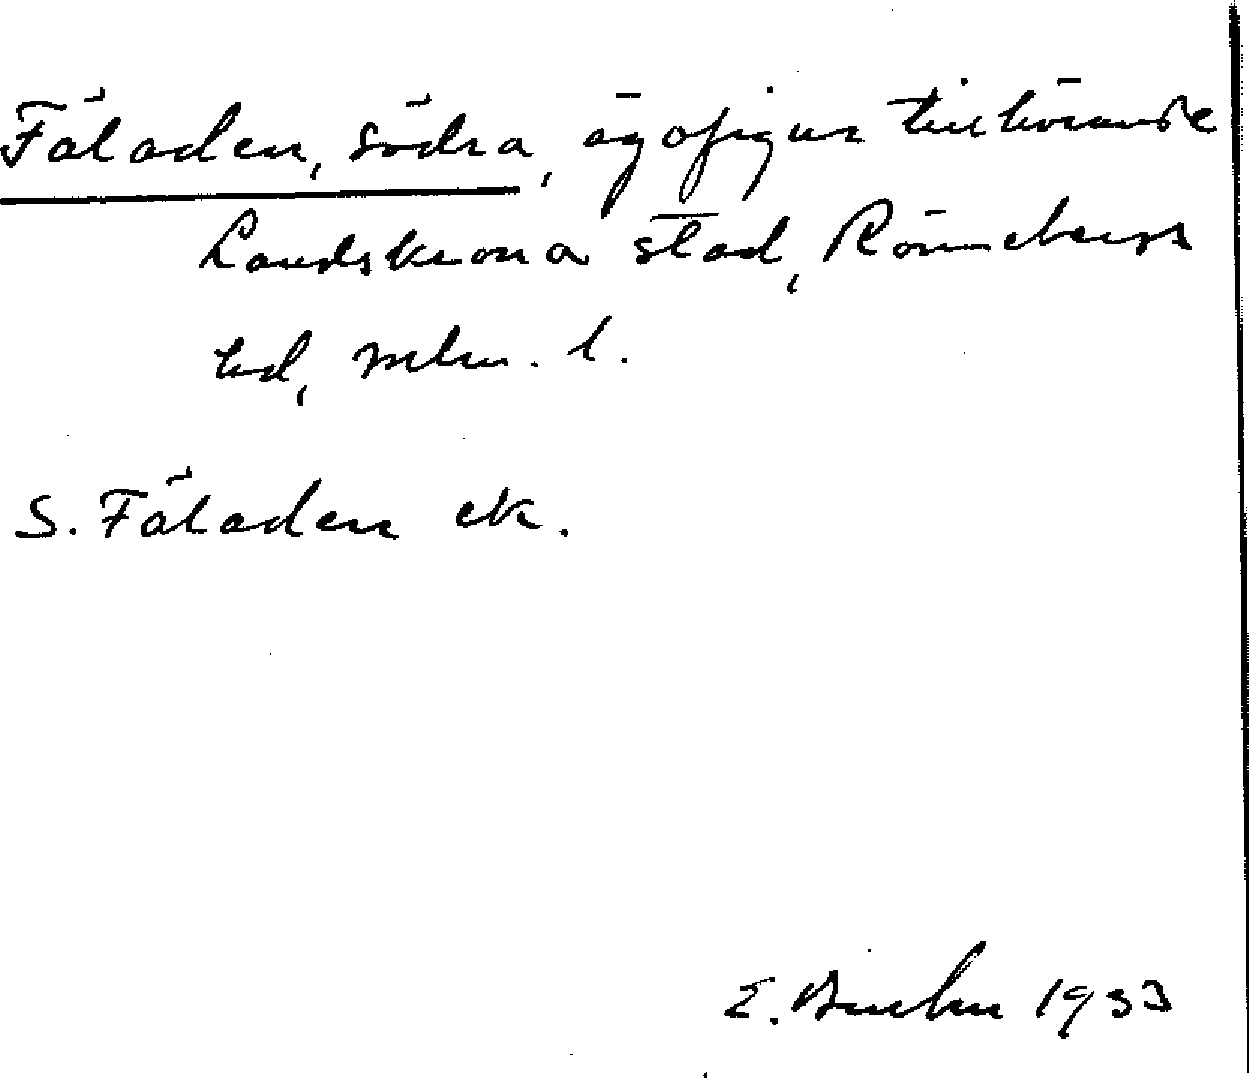 Fäladen, södra, ägofigur tillhörande
Landskrona stad, Rönnebergs
hd, Mlm. l.
S. Fäladen ek.
E. 1933